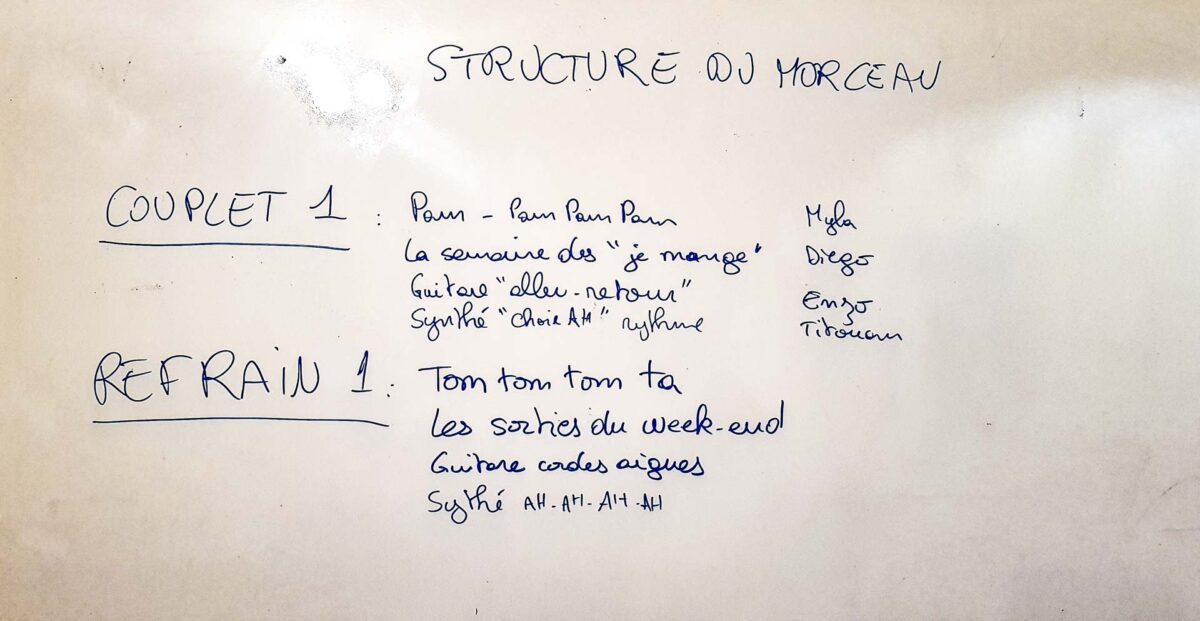 STRUCTURE DU MORCEAU
COUPLET 1 : Pam - Pam Pam Pam Myla
La semaine des "je mange" Diego
Guitare "aller-retour" Enzo
Synthé "choir AH" rythme Titouan
REFRAIN 1 : Tom tom tom ta
Les sorties du week-end
Guitare cordes aigues
Sythé AH-AH-AH-AH